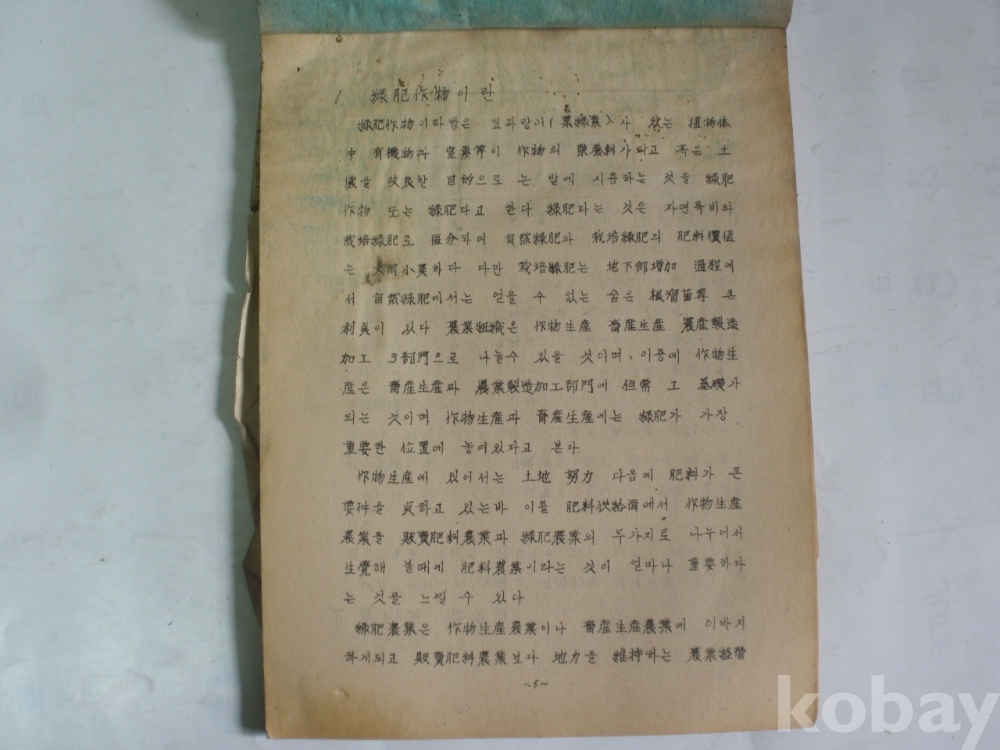 1 綠肥作物이란
綠肥作物이라함은 엽파랑이(葉綠素)가 있는 植物体
中 有機物과 窒素等이 作物의 聚養料가되고 혹은 土
壤을 改良할 目的으로 논 밭에 시용하는 것을 綠肥
作物 또는 綠肥라고 한다 綠肥라는 것은 자연록비와
栽培綠肥로 區分되며 自然綠肥와 栽培綠肥의 肥料價値
는 大同小異하다 다만 栽培綠肥는 地下部增加 過程에
서 自然綠肥에서는 얻을 수 없는 숨은 根瘤菌等 큰
利益이 있다 農業組織은 作物生産 畜産生産 農産製造
加工 3部門으로 나눌수 있을 것이며, 이중에 作物生
産은 畜産生産과 農業製造加工部門에 但需 工 基礎가
되는 것이며 作物生産과 畜産生産에는 綠肥가 가장
重要한 位置에 놓여있다고 본다
作物生産에 있어서는 土地 努力 다음에 肥料가 큰
要件을 하고 있는바 이를 肥料供給面에서 作物生産
農業을 販賣肥料農業과 綠肥農業의 두가지로 나누어서
生覺해 볼때에 肥料農業이라는 것이 얼마나 重要하다
는 것을 느낄 수 있다
綠肥農業은 作物生産農業이나 畜産生産農業에 이바지
하게되고 販賣肥料農業보다 地力을 維持하는 農業經營
~5~
kobay